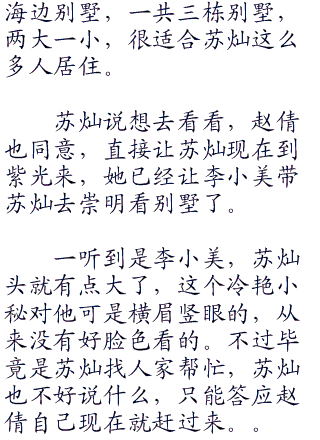 海边别墅，一共三栋别墅，
两大一小，很适合苏灿这么
多人居住。
苏灿说想去看看，赵倩
也同意，直接让苏灿现在到
紫光来，她已经让李小美带
苏灿去崇明看别墅了。
一听到是李小美，苏灿
头就有点大了，这个冷艳小
秘对他可是横眉竖眼的，从
来没有好脸色看的。不过毕
竟是苏灿找人家帮忙，苏灿
也不好说什么，只能答应赵
倩自己现在就赶过来。。